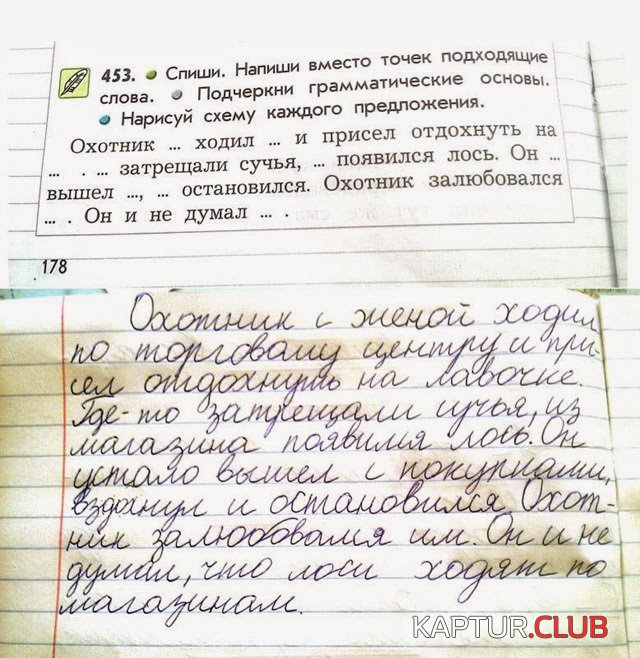 453. Спиши. Напиши вместо точек подходящие
слова. Подчеркни грамматические основы.
Нарисуй схему каждого предложения.
Охотник ... ходил ... и присел отдохнуть на
... . ... затрещали сучья, ... появился лось. Он ...
вышел ..., ... остановился. Охотник залюбовался
... . Он и не думал ... .
178
Охотник с женой ходил
по торговому центру и при-
сел отдохнуть на лавочке.
Где-то затрещали сучья, из
магазина появился лось. Он
устало вышел с покупками,
вздохнул и остановился. Охот-
ник залюбовался им. Он и не
думал, что лоси ходят по
магазинам.
KAPTUR.CLUB